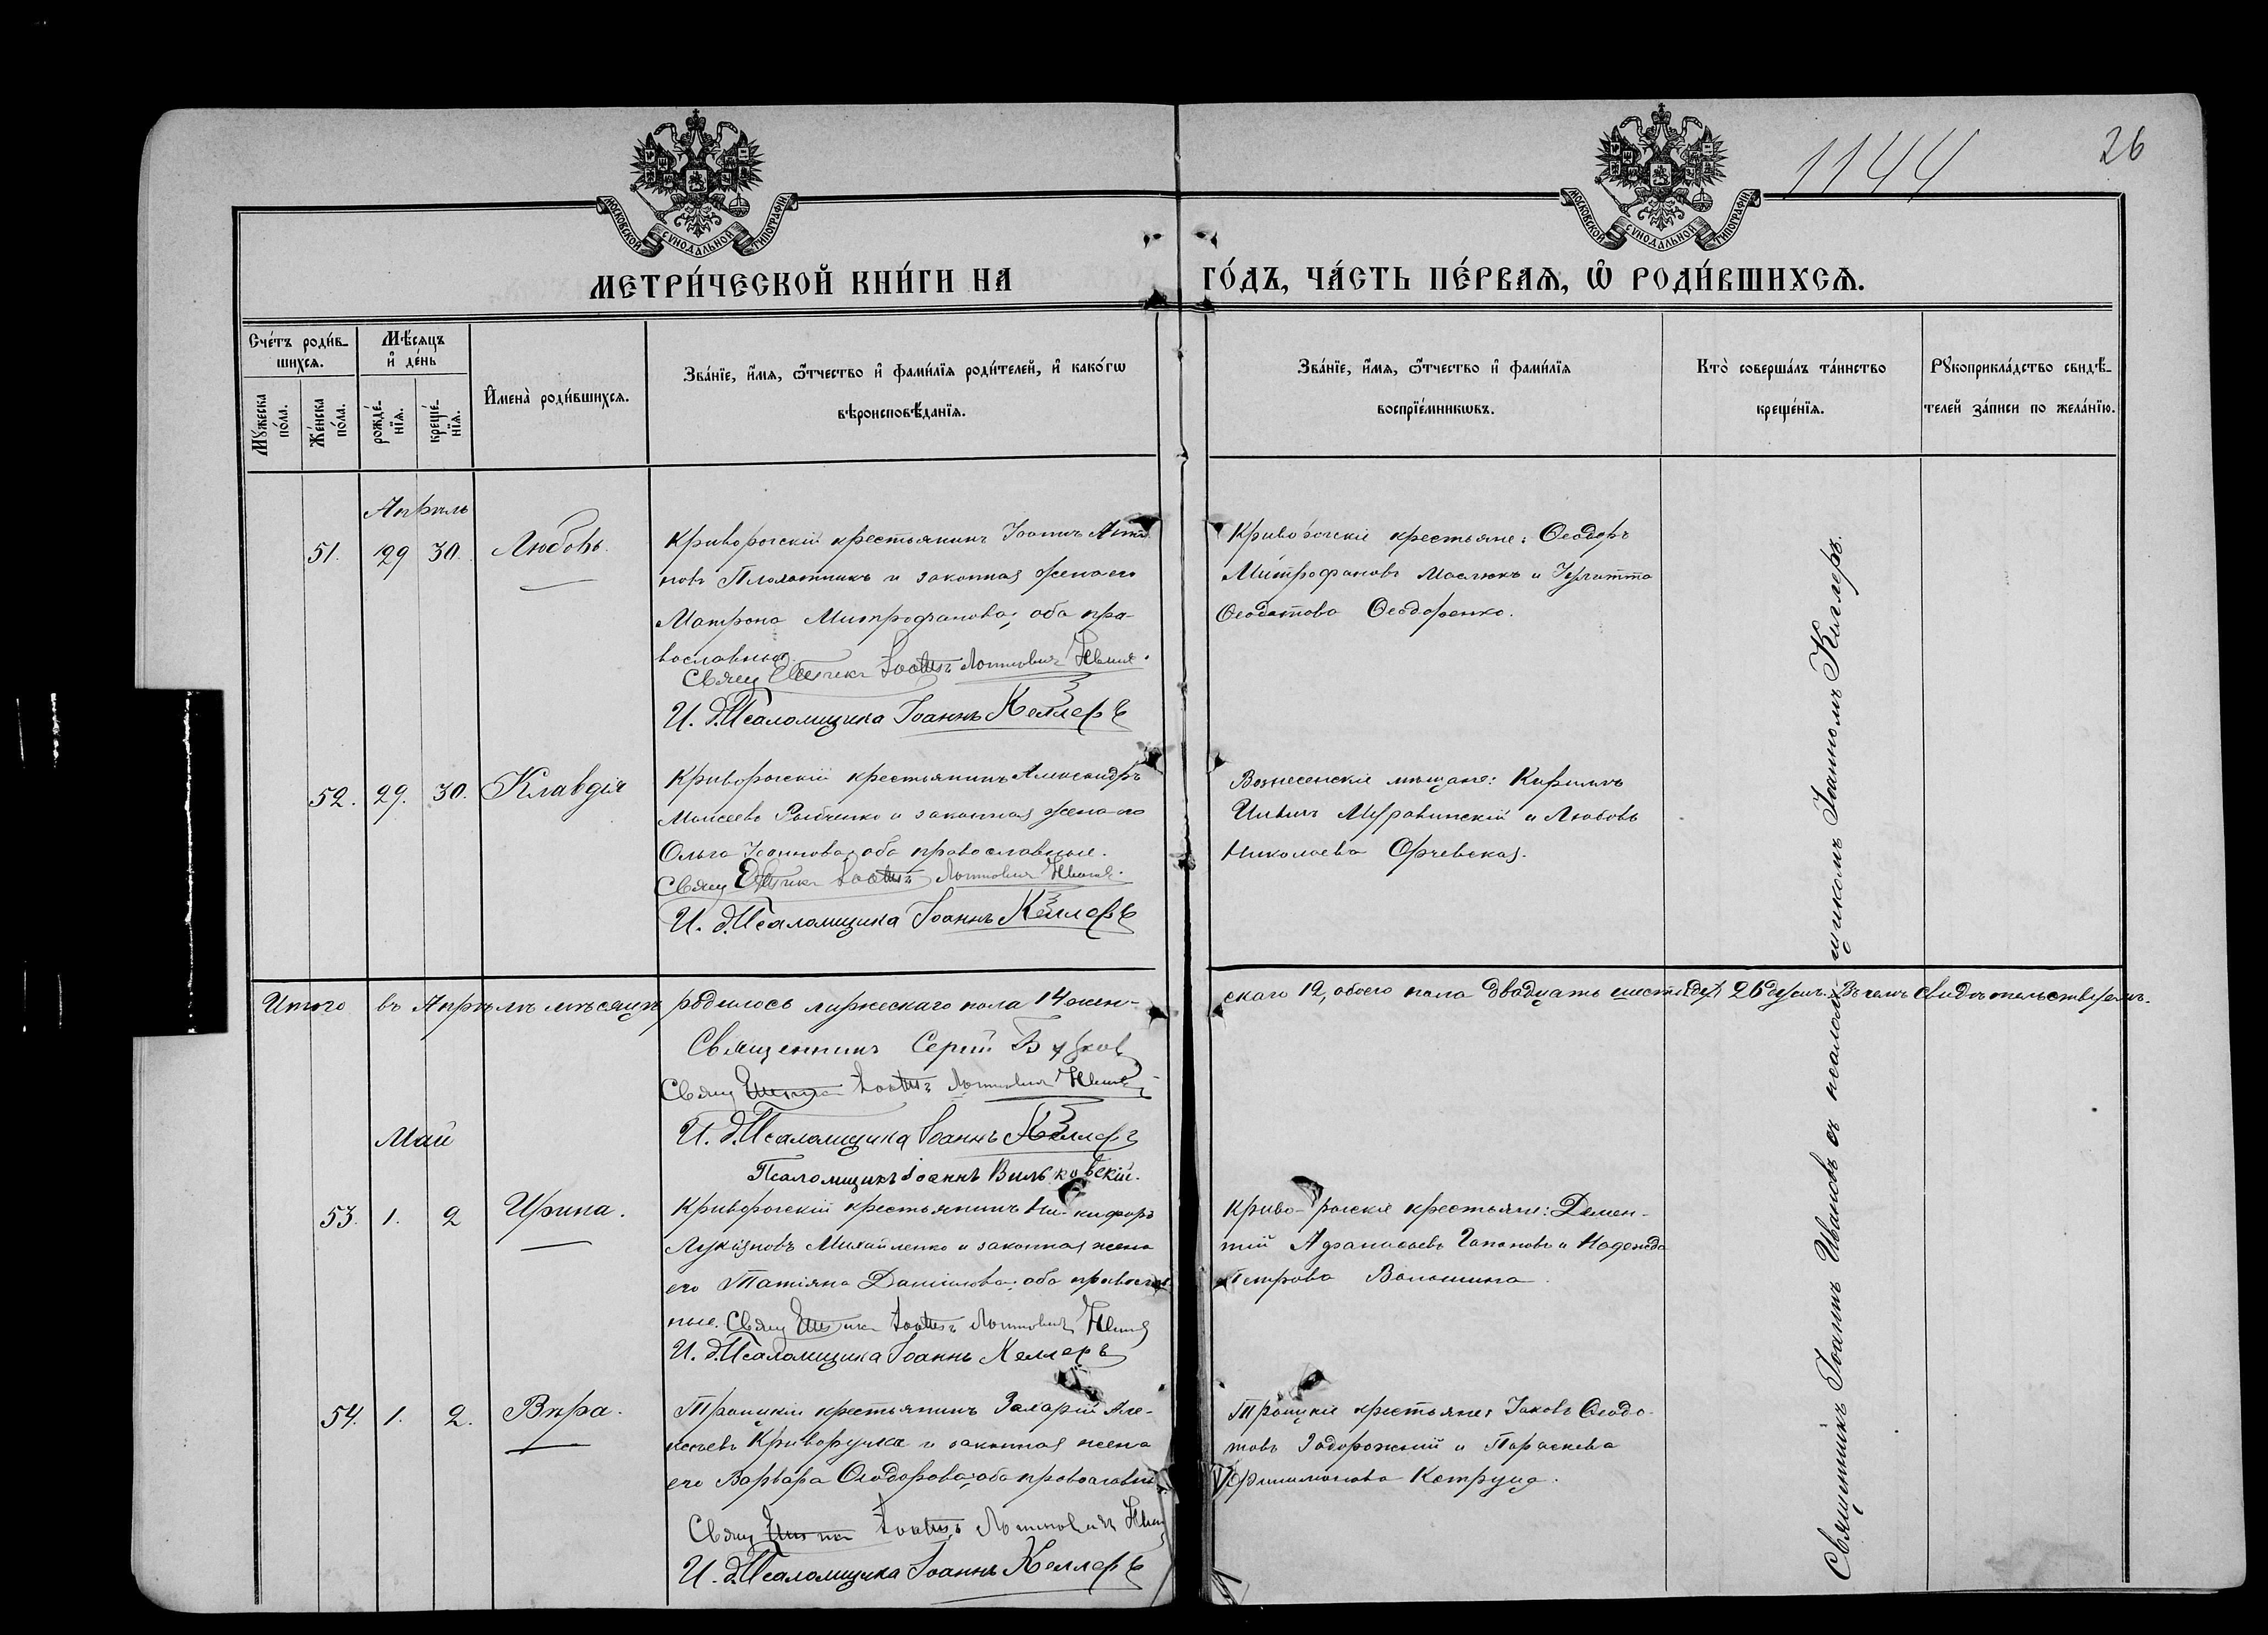 1144
26
МОСКОВСКОЙ СѴНОДАЛЬНОЙ ТИПОГРАФІИ
МОСКОВСКОЙ СѴНОДАЛЬНОЙ ТИПОГРАФІИ
МЕТРИ́ЧЕСКОЙ КНИ́ГИ НА ГО́ДЪ, ЧА́СТЬ ПЕ́РВАѦ, Ѡ҆ РОДИ́ВШИХСѦ.
Сче́тъ роди́в-
шихсѧ.
Му́жеска по́ла.
Же́нска по́ла.
Мѣ́сѧцъ
и҆ де́нь
рожде́-
нїѧ.
креще́-
нїѧ.
И҆мена̀ роди́вшихсѧ.
Зва́нїе, и҆́мѧ, ѻ҆́тчество и҆ фами́лїѧ роди́телей, и҆ како́гѡ
вѣроисповѣ́данїѧ.
Зва́нїе, и҆́мѧ, ѻ҆́тчество и҆ фами́лїѧ
воспрїе́мникѡвъ.
Кто̀ соверша́лъ та́инство
креще́нїѧ.
Рꙋкоприкла́дство свидѣ́-
телей за́писи по жела́нїю.
Апрѣль
51. 29 30. Любовь.
Криворогскій крестьянинъ Іоаннъ
новъ Плохотникъ и законная жена его
Матрона Митрофанова; оба пра-
вославные.
Свящ Іоаннъ
И. д. Псаломщика Іоаннъ Келлеръ
Криворогскіе крестьяне: Ѳеодоръ
Митрофановъ Маслюкъ и
Ѳеодотова Ѳеодоренко.
52. 29. 30. Клавдія
Криворогскій крестьянинъ Александръ
Моисеевъ Рыбченко и законная жена его
Ольга Іоаннова; оба православные.
Свящ Іоаннъ
И. д. Псаломщика Іоаннъ Келлеръ
Вознесенскіе мѣщане: Кириллъ
Ильинъ Муравинскій и Любовь
Николаева Орчевская.
Итого въ Апрѣлѣ мѣсяцѣ родилось мужескаго пола 14 жен-
скаго 12, обоего пола двадцать шесть 26 душъ. Въ чемъ свидѣтельствуемъ.
Священникъ Сергій
Свящ Іоаннъ
И. д. Псаломщика Іоаннъ Келлеръ
Псаломщикъ Іоаннъ Вильковскій.
Май
53. 1. 2 Ирина.
Криворогскій крестьянинъ Ни-кифоръ
Лукіяновъ Михайленко и законная жена
его Татіяна Даніилова; оба православ-
ные. Свящ Іоаннъ
И. д. Псаломщика Іоаннъ Келлеръ
Криво-рогскіе крестьяне: Демен-
тій Афанасьевъ Гапоновъ и Надежда
Петрова Волошина.
54. 1. 2. Вѣра.
Троицкій крестьянинъ Захарій Але-
ксѣевъ Криворучка и законная жена
его Варвара Ѳеодорова; оба православн.
Свящ Іоаннъ
И. д. Псаломщика Іоаннъ Келлеръ
Троицкіе крестьяне: Іаковъ Ѳеодо-
товъ Задорожный и Параскева
Филимонова Катруца.
Священникъ Іоаннъ Ивановъ съ псаломщикомъ Іоанномъ Келлеръ.